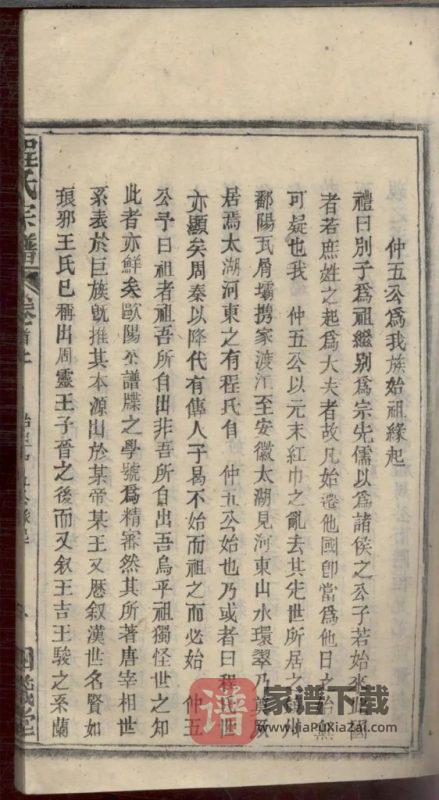 仲五公爲我族始祖緣起
禮曰別子爲祖繼別爲宗先儒以爲諸侯之公子若始來
者若庶姓之起爲大夫者故凡始遷他國卽當爲他日之始
可疑也我 仲五公以元末紅巾之亂去其先世所居之
鄱陽瓦屑壩携家渡江至安徽太湖見河東山水環翠乃
居焉太湖河東之有程氏自 仲五公始也乃或者曰程氏世
亦顯矣周秦以降代有傳人子曷不始而祖之而必始 仲五
公予曰祖者祖吾所自出非吾所自出吾烏乎祖獨怪世之知
此者亦鮮矣歐陽公譜牒之學號爲精審然其所著唐宰相世
系表於巨族旣推其本源出於某帝某王又歷叙漢世名賢如
瑯邪王氏已稱出周靈王子晉之後而又叙王吉王駿之系蘭
程氏宗譜
卷首上
家谱下载
www.jiaPuXiaZai.com
谱